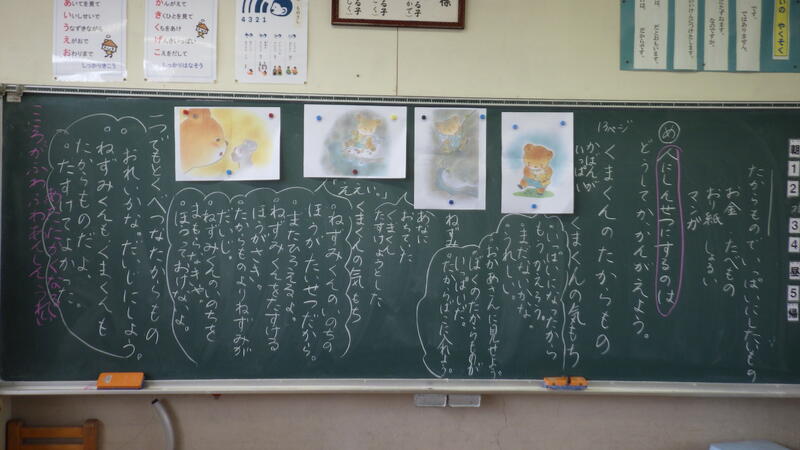 あいてを見て
いいしせいで
うなずきながら
えがおで
おわりまで
しっかりきこう
かんがえて
きくひとを見て
くちをあけ
げんきいっぱい
こえをだして
しっかりはなそう
4 3 2 1
やくそく
たからもので、いっぱいにしたいもの
お金 たべもの
おり紙 しょるい
マンガ
め
人にしんせつにするのは
どうしてか、かんがえよう。
13ページ
くまくんのたからもの
かばんが
いっぱい
くまくんの気もち
いっぱいになったから
もうつかえろう。
まだないかな。
うれしい。
おかあさんに見せよう。
ぼくのたからものが
いっぱいだ。
たからばこに入れよう。
ねずみ
あなに
おちていた
くまくん
たすけようとした
「ええい。」
くまくんの気もち
ねずみくんのいのちの
ほうがたいせつだから。
またひろえるよ。
ねずみくんをたすける
ほうがさき。
たからものよりねずみが
だいじ。
ねずみくんのいのちを
まもらなきゃ。
ほうっておけないよ。
一つでもとくべつなたからもの
おれいかな。だいじにしよう。
ねずみくんもくまくんも
たからものだよ。
たすけてよかった。
あたたかくなる
朝
1
2
3
4
昼
5
帰